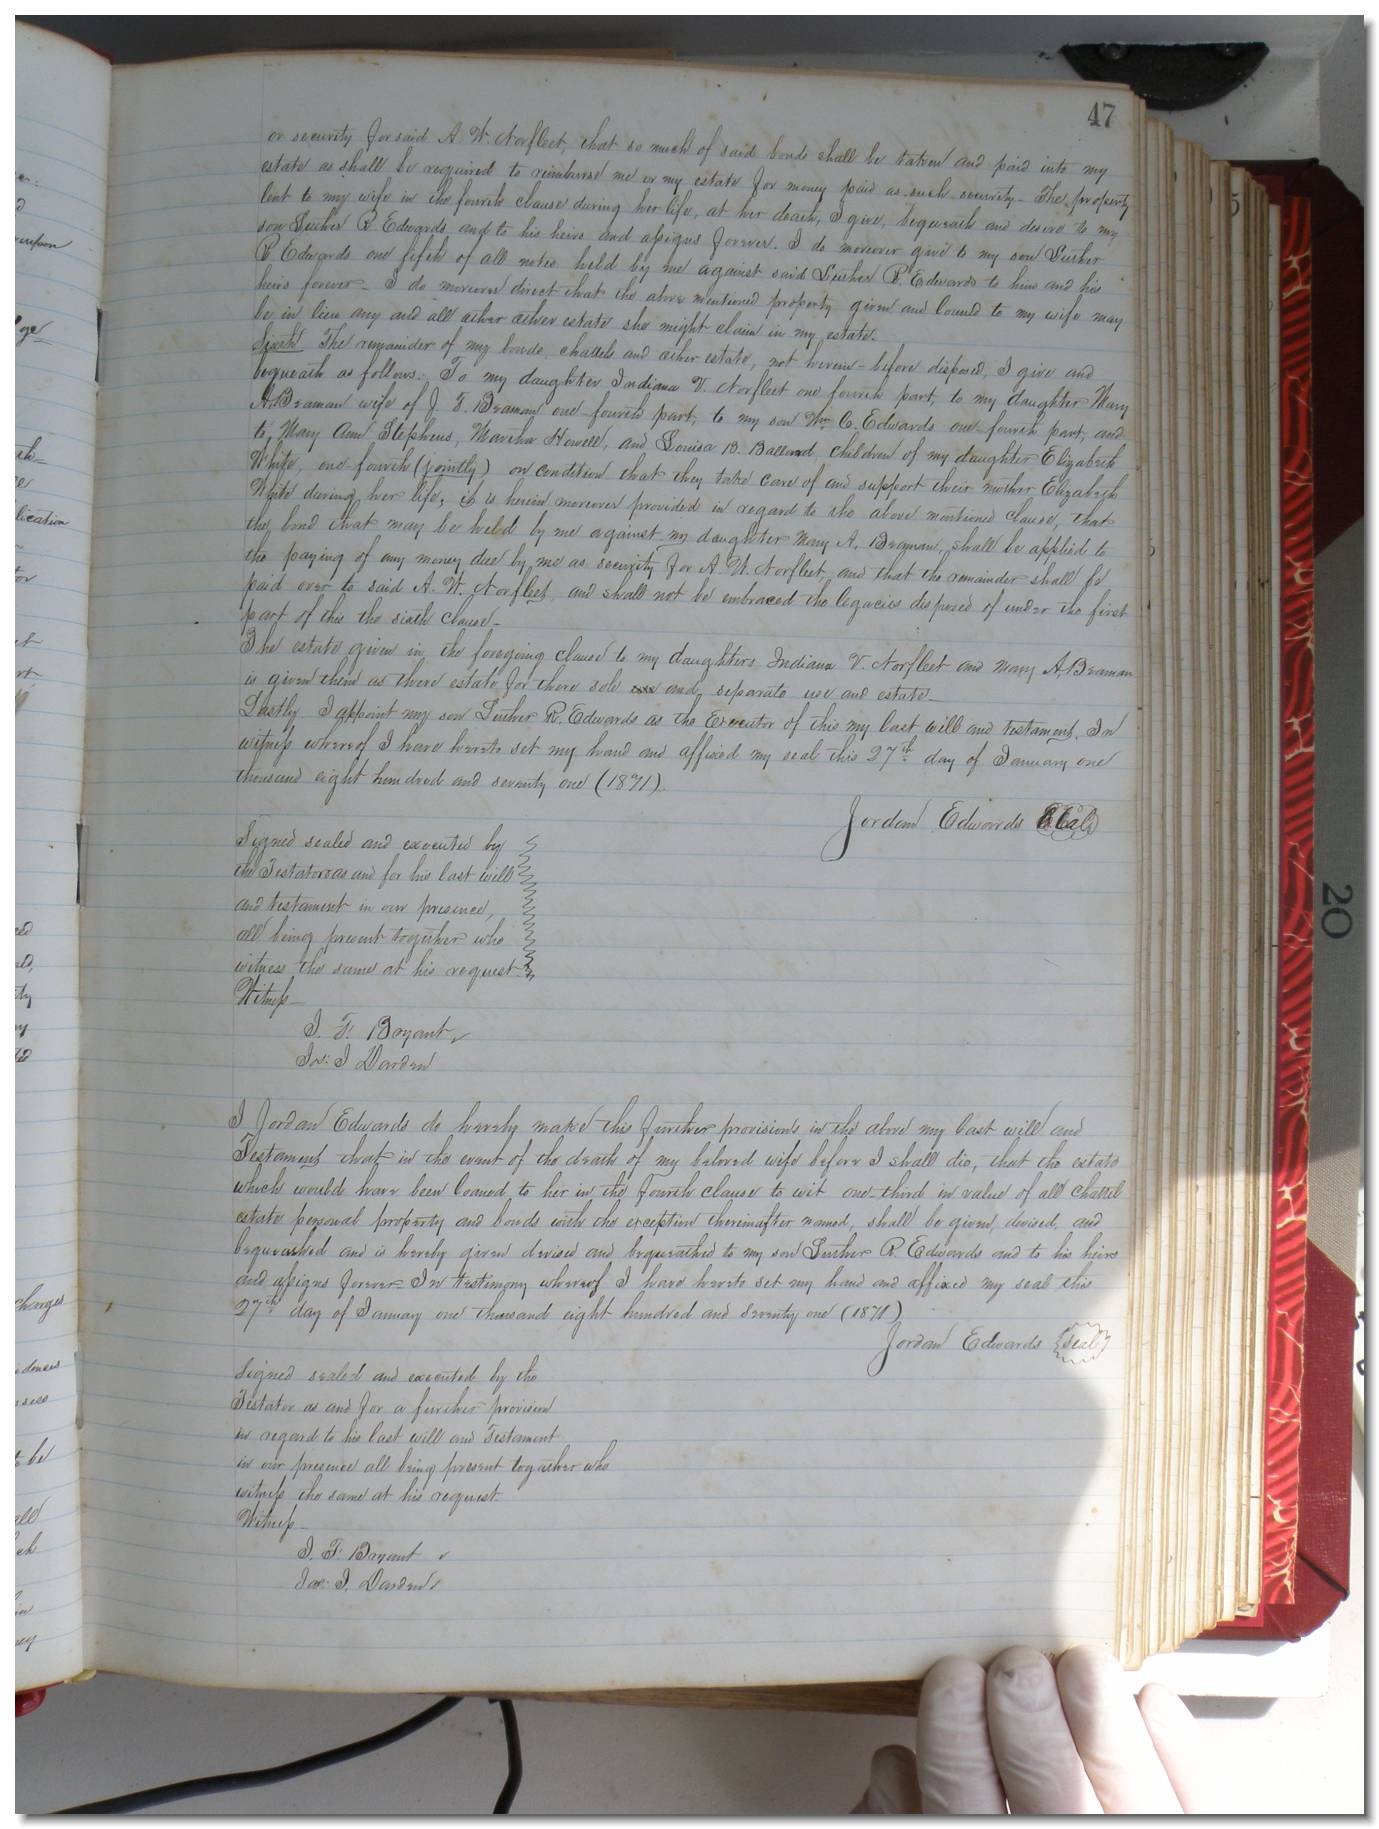 47
or security for said A. W. Norfleet, that so much of said bonds shall be taken and paid into my
estate as shall be required to reimburse me or my estate for money paid as such security - The property
lent to my wife in the fourth clause during her life, at her death, I give, bequeath and desire to my
son Luther R Edwards and to his heirs and assigns forever. I do moreover give to my son Luther
R Edwards one fifth of all notes held by me against said Luther R. Edwards to him and his
heirs forever - I do moreover direct that the above mentioned property given and loaned to my wife may
be in lieu any and all other other estate she might claim in my estate.
Sixth The remainder of my bonds, chattels and other estate, not herein-before disposed, I give and
bequeath as follows. To my daughter Indiana V. Norfleet one fourth part, to my daughter Mary
A. Beaman wife of J. T. Beaman one-fourth part, to my son Wm C. Edwards one fourth part, and
to, Mary Ann Stephens, Martha Howell, and Louisa B. Ballard, children of my daughter Elizabeth
White, one-fourth (jointly) on condition that they take care of and support their mother Elizabeth
White during her life, it is herein moreover provided in regard to the above mentioned clause, that
the bond that may be held by me against my daughter Mary A. Beaman, shall be applied to
the paying of any money due by me as security for A. W. Norfleet, and that the remainder shall be
paid over to said A. W. Norfleet, and shall not be embraced the legacies disposed of under the first
part of this the sixth clause -
The estate given in the foregoing clause to my daughters Indiana V. Norfleet and Mary A. Beaman
is given them as there estate for there sole use and, separate use and estate -
Lastly. I appoint my son Luther R. Edwards as the Executor of this my last will and testament. In
witness whereof I have hereto set my hand and affixed my seal this 27th day of January one
thousand eight hundred and seventy one (1871).
Jordan Edwards Seal
Signed sealed and executed by
the Testator as and for his last will
and testament in our presence,
all being present together who
witness the same at his request -
Witness -
J. F. Bryant
Jas. J Darden
I Jordan Edwards do hereby make this further provisions in the above my last will and
Testament that in the event of the death of my beloved wife before I shall die, that the estate
which would have been loaned to her in the fourth clause to wit one-third in value of all chattel
estate personal property and bonds with the exception thereinafter named, shall be given, devised, and
bequeathed and is hereby given devised and bequeathed to my son Luther R. Edwards and to his heirs
and assigns forever - In testimony whereof I have hereto set my hand and affixed my seal this
27th day of January one thousand eight hundred and seventy one (1871)
Jordan Edwards Seal
Signed sealed and executed by the
Testator as and for a further provision
in regard to his last will and Testament
in our presence all being present together who
witness the same at his request.
Witness -
J. F. Bryant
Jas. J. Darden
20